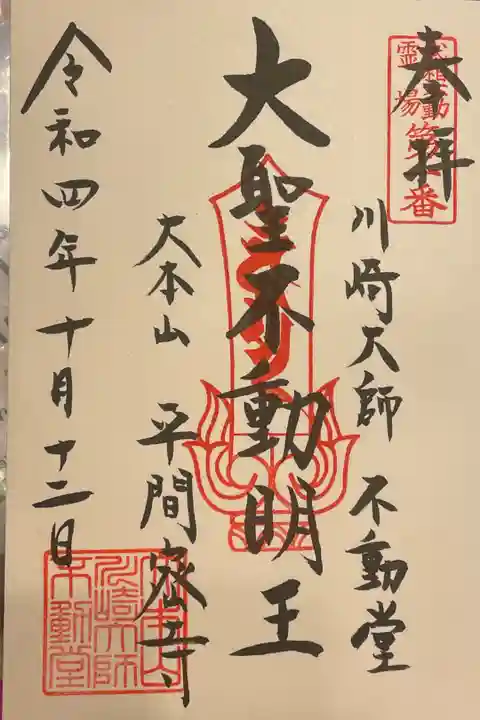 奉拝
川崎大師 不動堂
大聖不動明王
大本山 平間寺
令和四年十月十二日
霊場第一番
大本山
川崎大師
不動堂